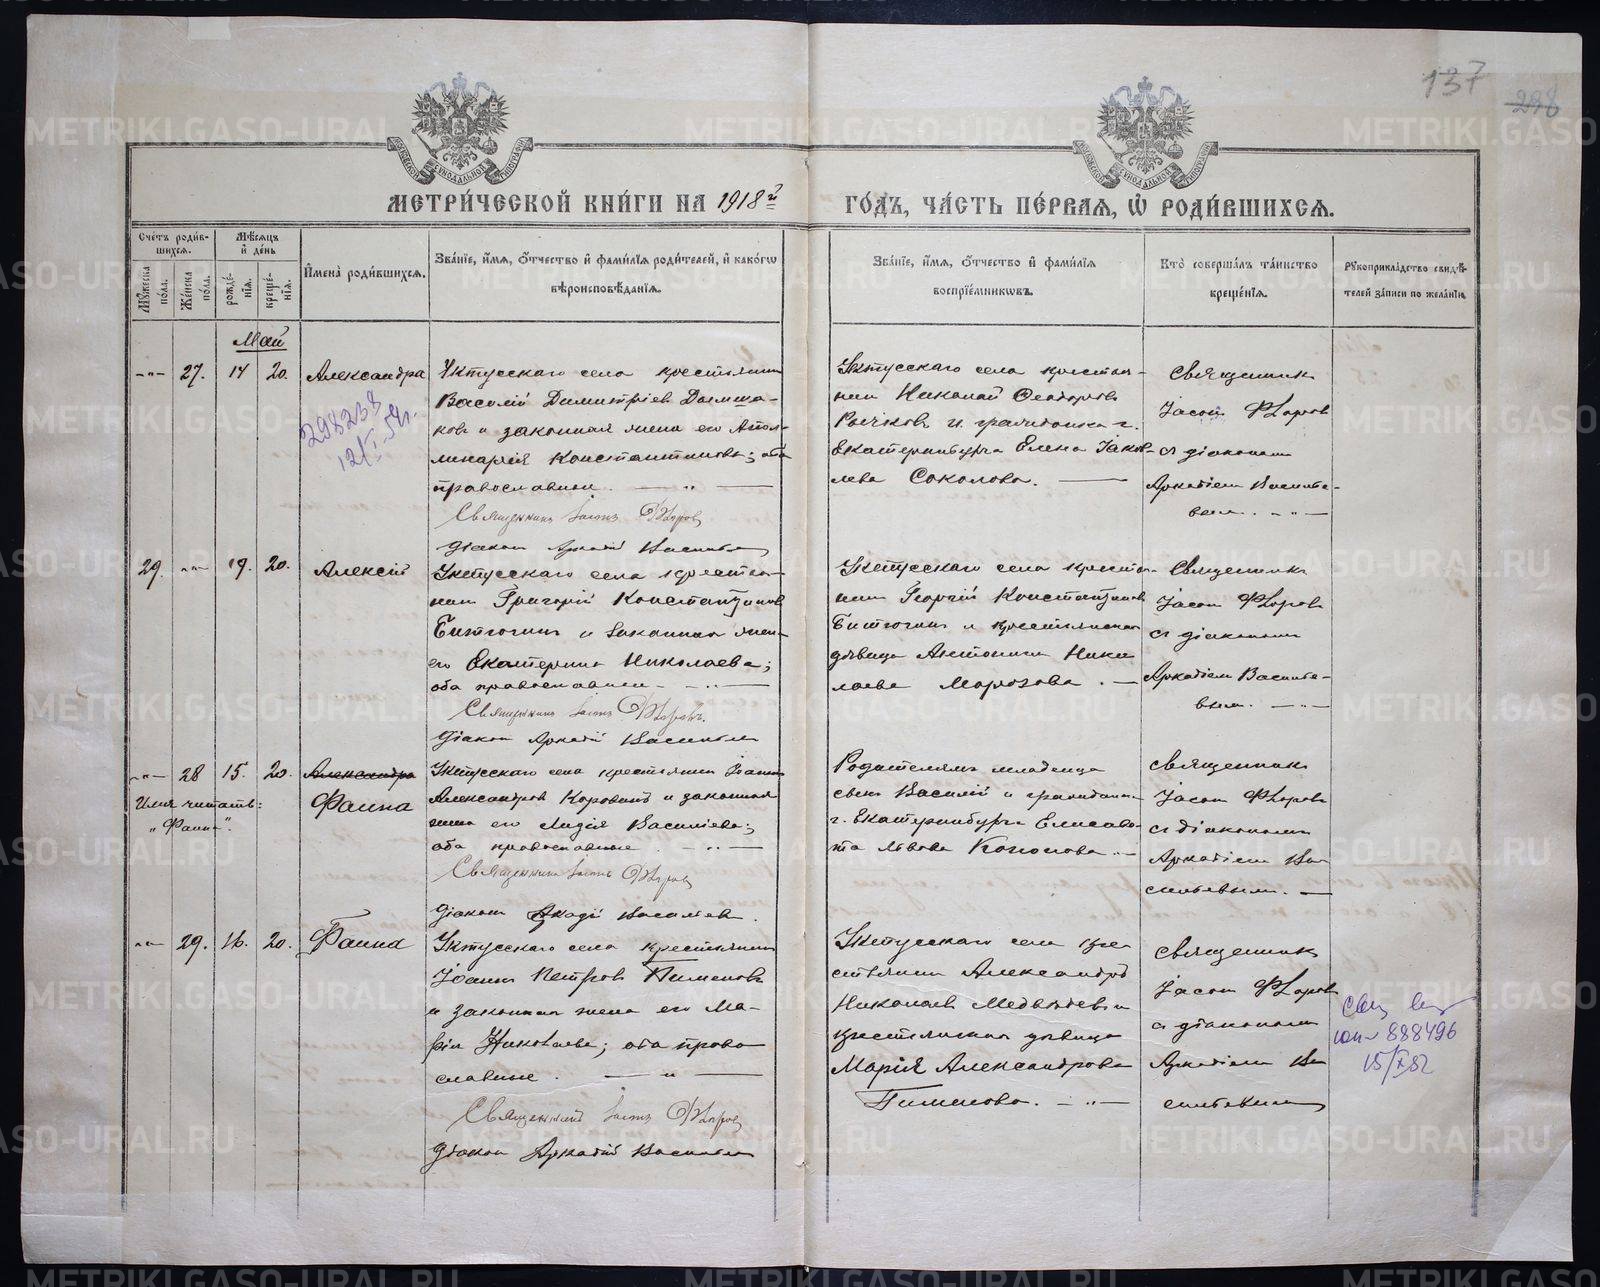 137
298
МЕТРИ́ЧЕСКОЙ КНИ́ГИ НА 1918й
ГО́ДЪ, ЧА́СТЬ ПЕ́РВАЯ, Ѡ РОДИ́ВШИХСЯ.
Счетъ роди́в-
шихся.
Мѣ́сяцъ
и́ де́нь
Мꙋ́жеска
по́ла.
Же́нска
по́ла.
рожде́-
нїя.
креще́-
нїя.
И҆мена̀ роди́вшихся.
Зва́нїе, и҆́мя, ѻ҆́тчество и҆ фами́лїя роди́телей, и҆ како́гѡ
вѣроисповѣ́данїя.
Зва́нїе, и҆́мя, ѻ҆́тчество и҆ фами́лїя
воспрїе́мникѡвъ.
Кто̀ соверша́лъ та́инство
креще́нїя.
Рꙋкоприкла́дство свидѣ́-
телей за́писи по жела́нїю.
Май
-"- 27. 14 20. Александра
Уктусскаго села крестьянинъ
Василій Димитріев
ковъ и законная жена его Апол-
линарія Константинова; оба
православные. — " —
Священникъ Іасонъ Флоров
Діаконъ Аркадій Васильев
Уктусскаго села крестья-
нин Николай Феодоровъ
Рычковъ и гражданка г.
Екатеринбурга Елена Іаков-
лева Соколова. —
Священникъ
Іасонъ Флоровъ
съ діакономъ
Аркадіемъ Василье-
вым. - " -
298238
12/I 54г.
29. -"- 19. 20. Алексій
Уктусскаго села крестья-
нин Григорій Константинов
и законная жена
его Екатерина Николаева;
оба православные - " -
Священникъ Іасонъ Флоровъ.
Діакон Аркадій Васильев
Уктусскаго села крестья-
нин Георгій Константинов
и крестьянская
дѣвица Антонина Нико
лаева Морозова. —
Священникъ
Іасон Флоровъ
съ діакономъ
Аркадіем Василье-
вым. - " -
-"- 28 15. 20. Александра
Имя читать:
"Фаина".
Фаина
Уктусскаго села крестьянин Іоанн
Александров Коровинъ и законная
жена его Лидія Василіева;
оба православные. - " -
Священникъ Іасонъ Флоров
Діакон Аркадій Васильев.
Родителямъ младенца
Василій и гражданка
г. Екатеринбурга Елисаве-
та Львова Кононова. -
Священникъ
Іасон Флоровъ
съ діакономъ
Аркадіем Ва
сильевым. —
-"- 29. 16. 20. Фаина
Уктусскаго села крестьянин
Іоанн Петров Пименовъ
и законная жена его Ма-
рія Николаева; оба право
славные. — " —
Священникъ Іасонъ Флоров
Діакон Аркадій Васильев
Уктусскаго села кре
стьянин Александръ
Николаев Медвѣдев и
крестьянская дѣвица
Марія Александрова
Пименова. - " -
Священник
Іасон Флоров
съ діакономъ
Аркадіем Ва
сильевым
888496
15/X 82